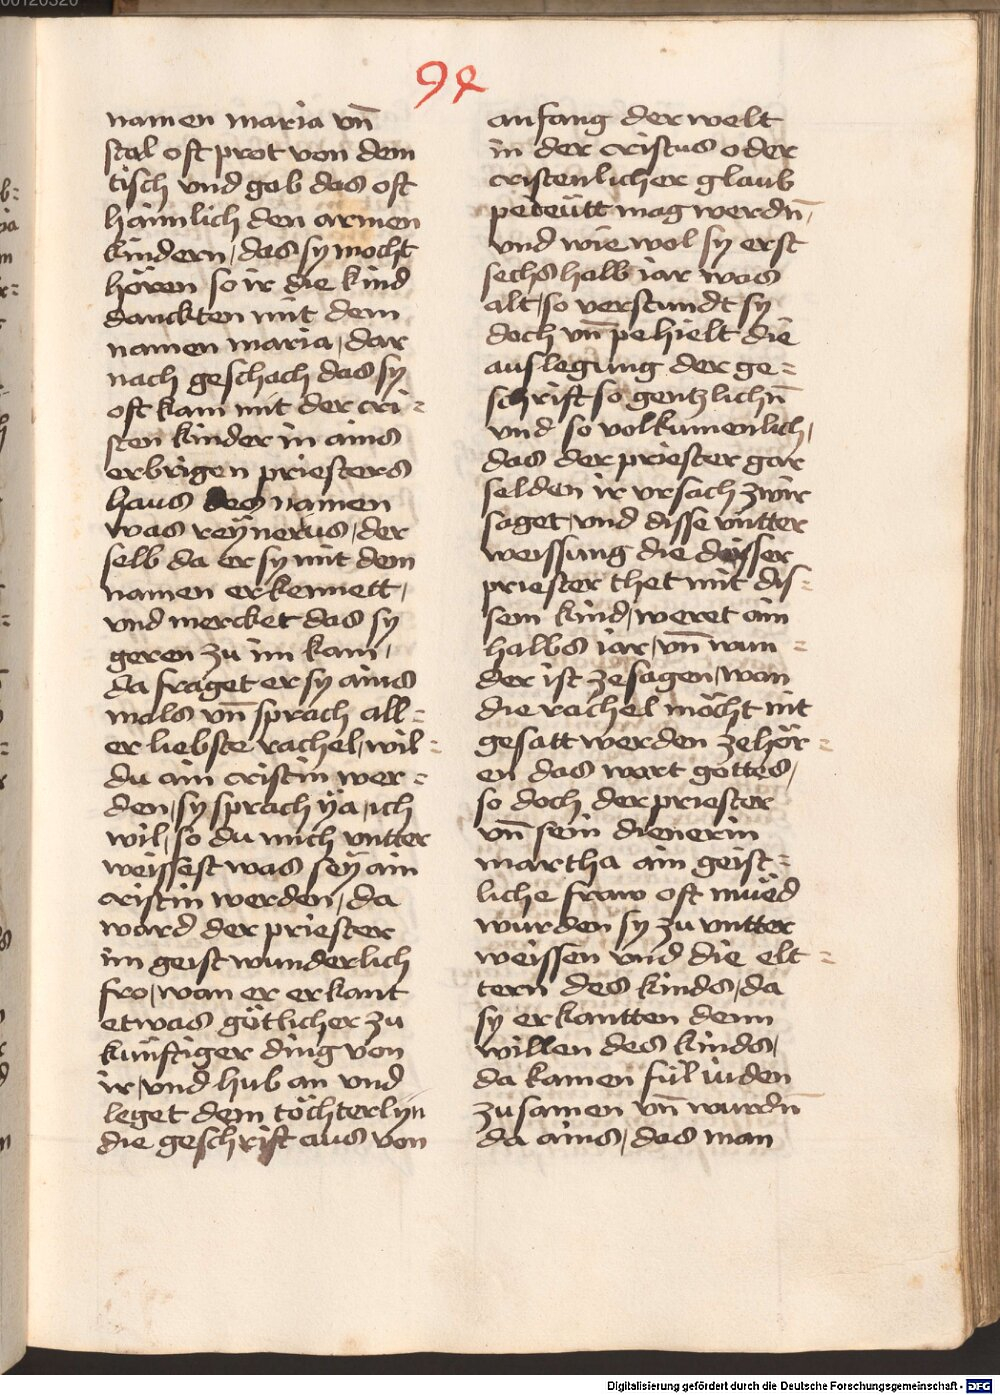 94
namen maria vn̄
stal oft prot von dem
tisch vnd gab das oft
haimlich den armen
kindern / das sy mocht
hören so ir die kind
danckten mit dem
namen maria / dar
nach geschach das sy
oft kam mit der cri=
sten kinder in ains
erbrigen priesters
haus des namen
was reÿnerus / der
selb da er sy mit dem
namen erkennett /
vnd mercket das sy
geren zu im kam /
da fraget er sy ains
mals vn̄ sprach all=
er liebste rachel / wil=
du ain cristin wer=
den / sy sprach ÿa / ich
wil / so du mich vntter
weissest was seÿ ain
cristin werden / da
ward der priester
im geist wunderlich
fro / wan er erkant
etwas götlicher zu
künftiger ding von
ir / vnd hub an vnd
leget dem töchterlyn
die geschrift aus von
anfang der welt
in der cristus oder
cristenlicher glaub
pedeütt mag werdn̄ /
vnd wie wol sy erst
sechshalb iar was
alt / so verstundt sy
doch vn̄ pehielt die
auslegung der ge=
schrift so gentzlichn̄
vnd so volkumenlich /
das der priester gar
selden ir vrsach zwir
saget / vnd disse vntter
weissung die disser
priester thet mit dis=
sem kind / weret ain
halbs iar / vn̄ wun=
der ist zesagen / wan
die rachel möcht nit
gesatt werden zehör=
en das wart gottes /
so doch der priester
vn̄ sein dienerin
martha ain geist=
liche fraw oft müed
wurden sy zu vntter
weissen vnd die elt=
tern des kinds / da
sy erkantten denn
willen des kinds /
da kamen fül iuden
zusamen vn̄ wurdn̄
da ains / das man
Digitalisierung gefördert durch die Deutsche Forschungsgemeinschaft - DFG